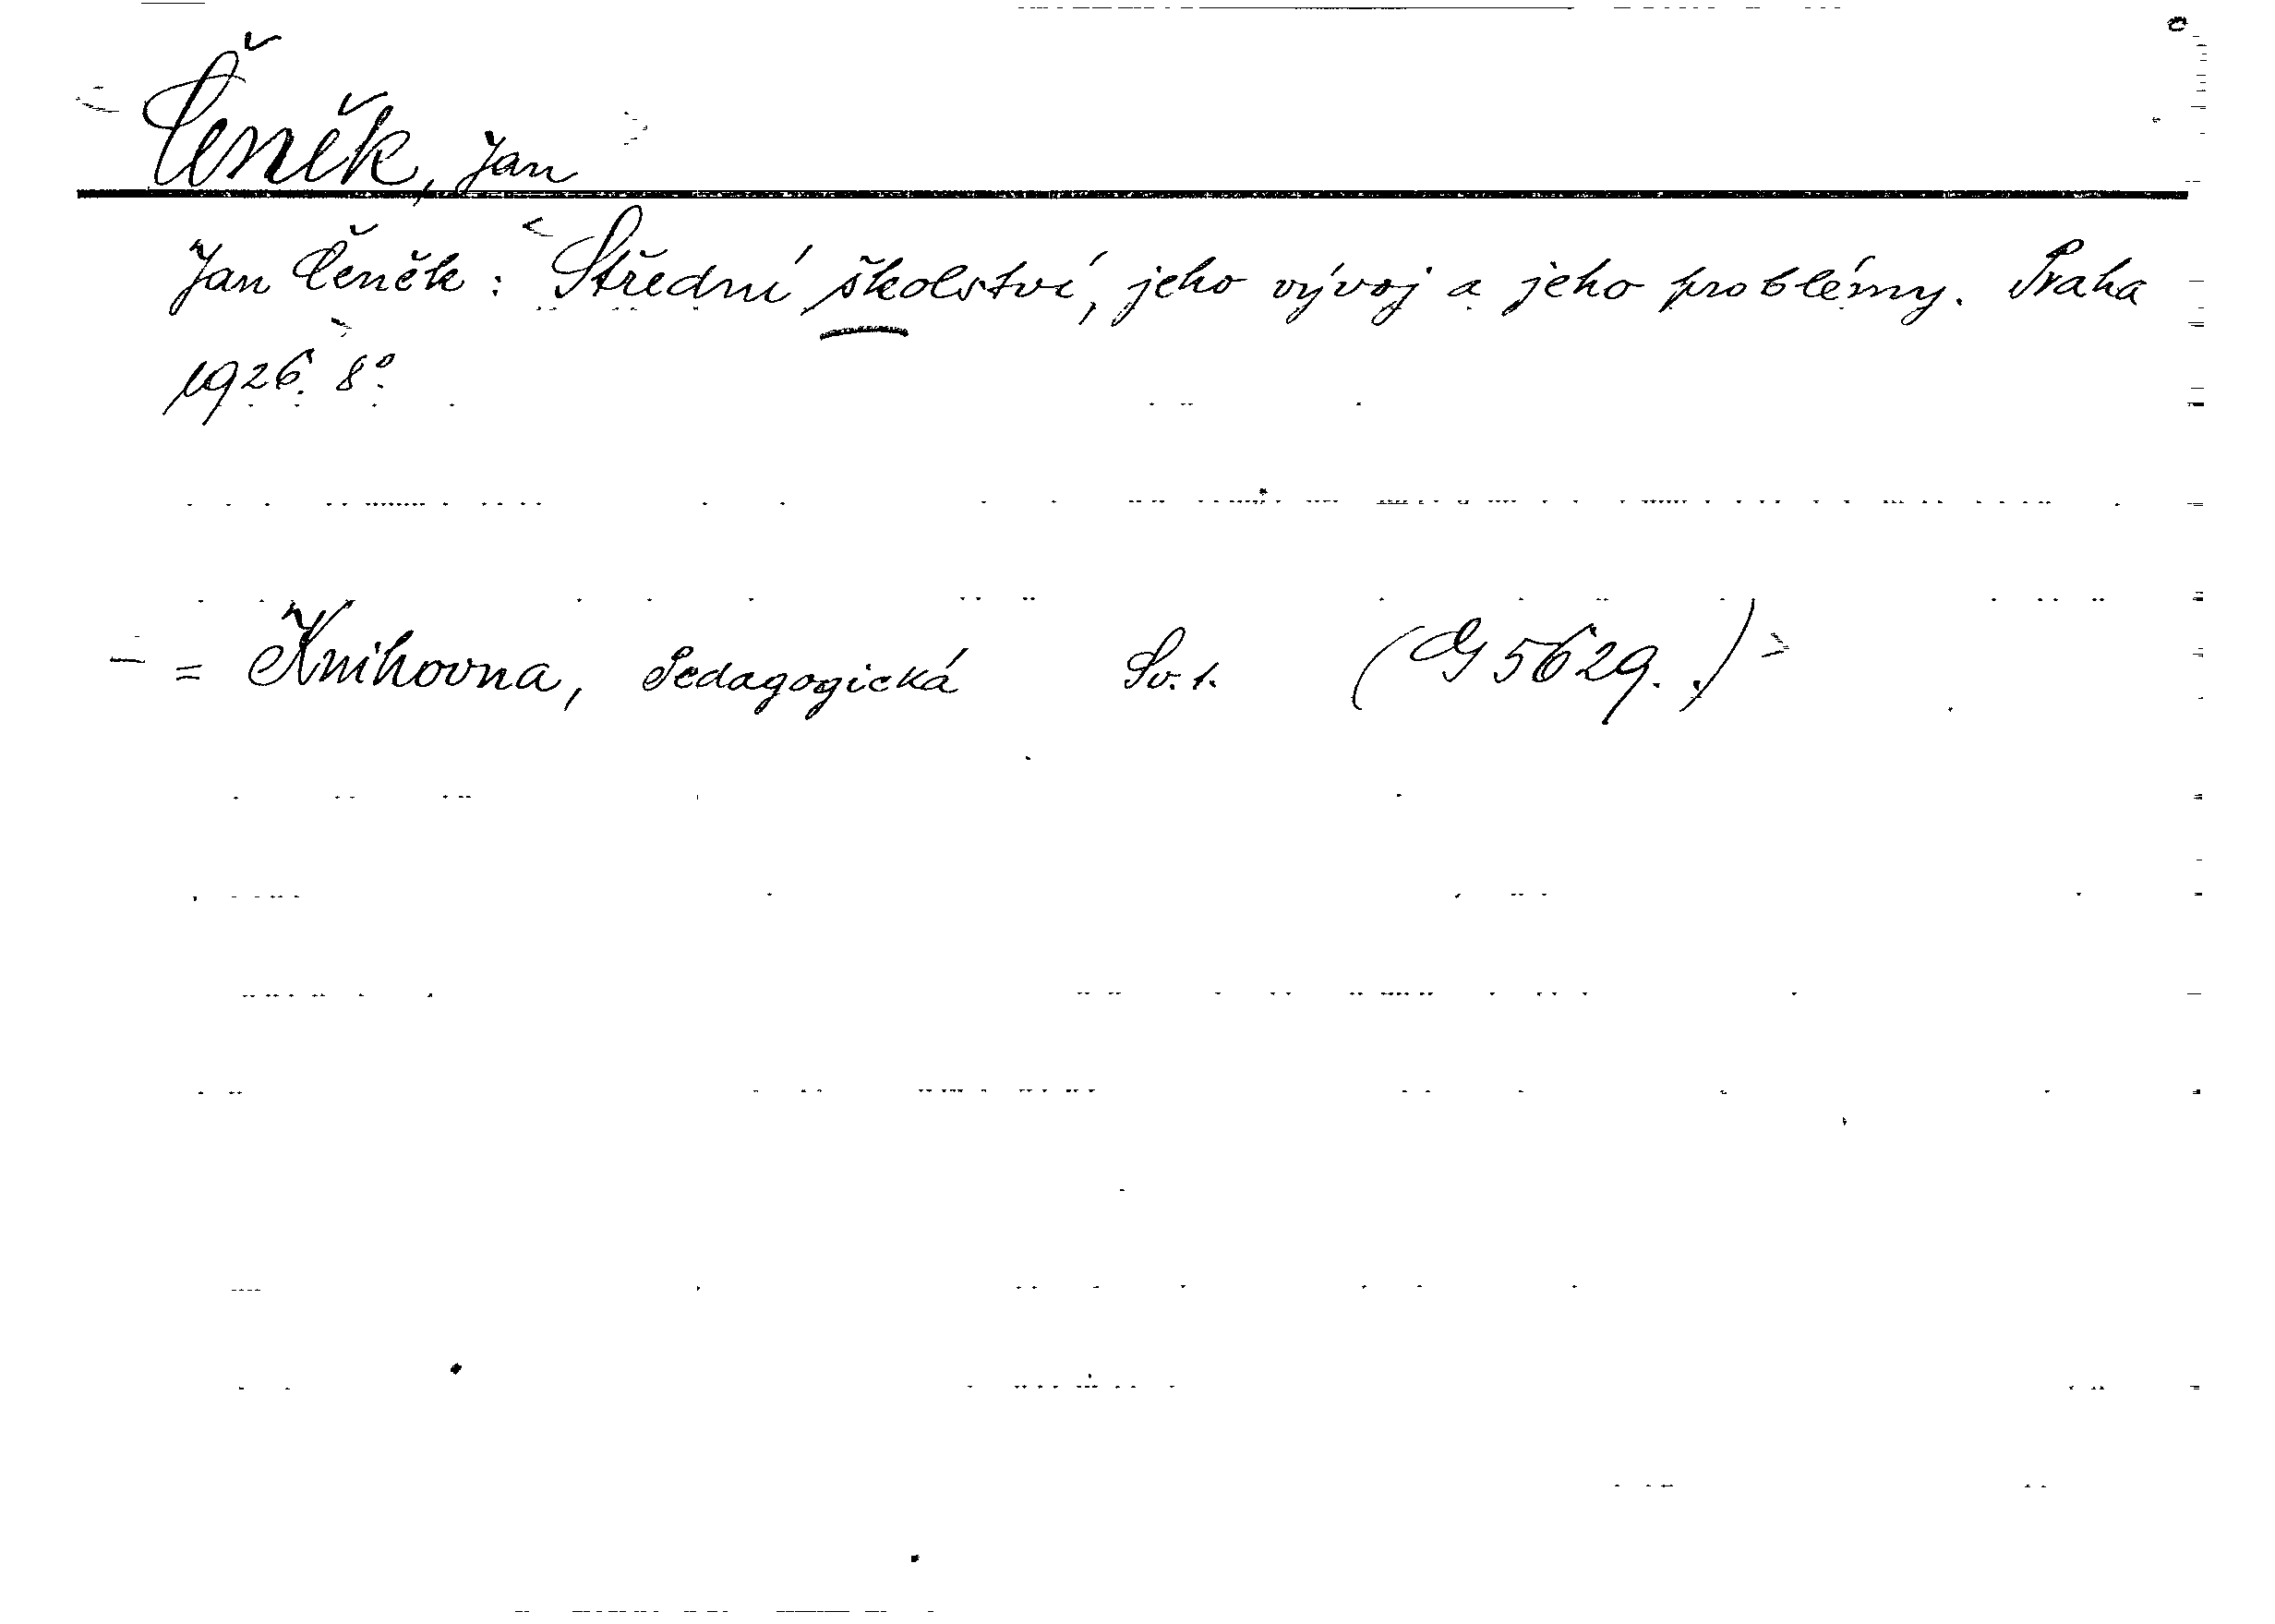 Čeněk, Jan
Jan Čeněk: Střední školství, jeho vývoj a jeho problémy. Praha
1926. 8°.
= Knihovna, Pedagogická Sv. 1. (G 5629.)